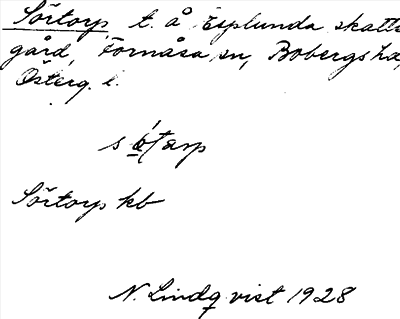 Sörtorp t. å Esplunda skatte
gård, Fornåsa sn, Bobergs hd,
Österg. l.
Sörtorp kb
N. Lindqvist 1928